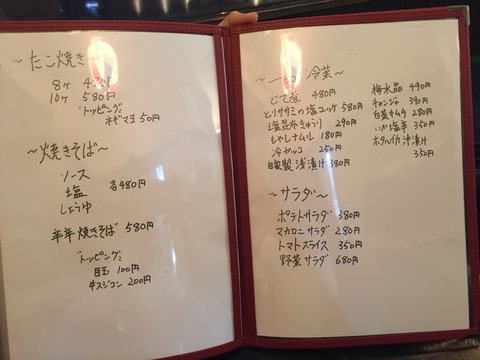 〜たこ焼き〜
8ヶ 4 0円
10ヶ 580円
トッピング
ネギマヨ 50円
〜焼きそば〜
ソース
塩 各480円
しょうゆ
辛辛焼きそば 580円
トッピング
目玉 100円
牛スジコン 200円
〜一品 冷菜〜
どて焼 480円
とりササミの塩ユッケ 580円
塩昆布きゅうり 290円
もやしナムル 180円
冷ヤッコ 250円
自家製浅漬け 380円
梅水晶 490円
チャンジャ 390円
白菜キムチ 280円
いか塩辛 350円
ホタルイカ沖漬け
350円
〜サラダ〜
ポテトサラダ 380円
マカロニサラダ 280円
トマトスライス 350円
野菜サラダ 680円